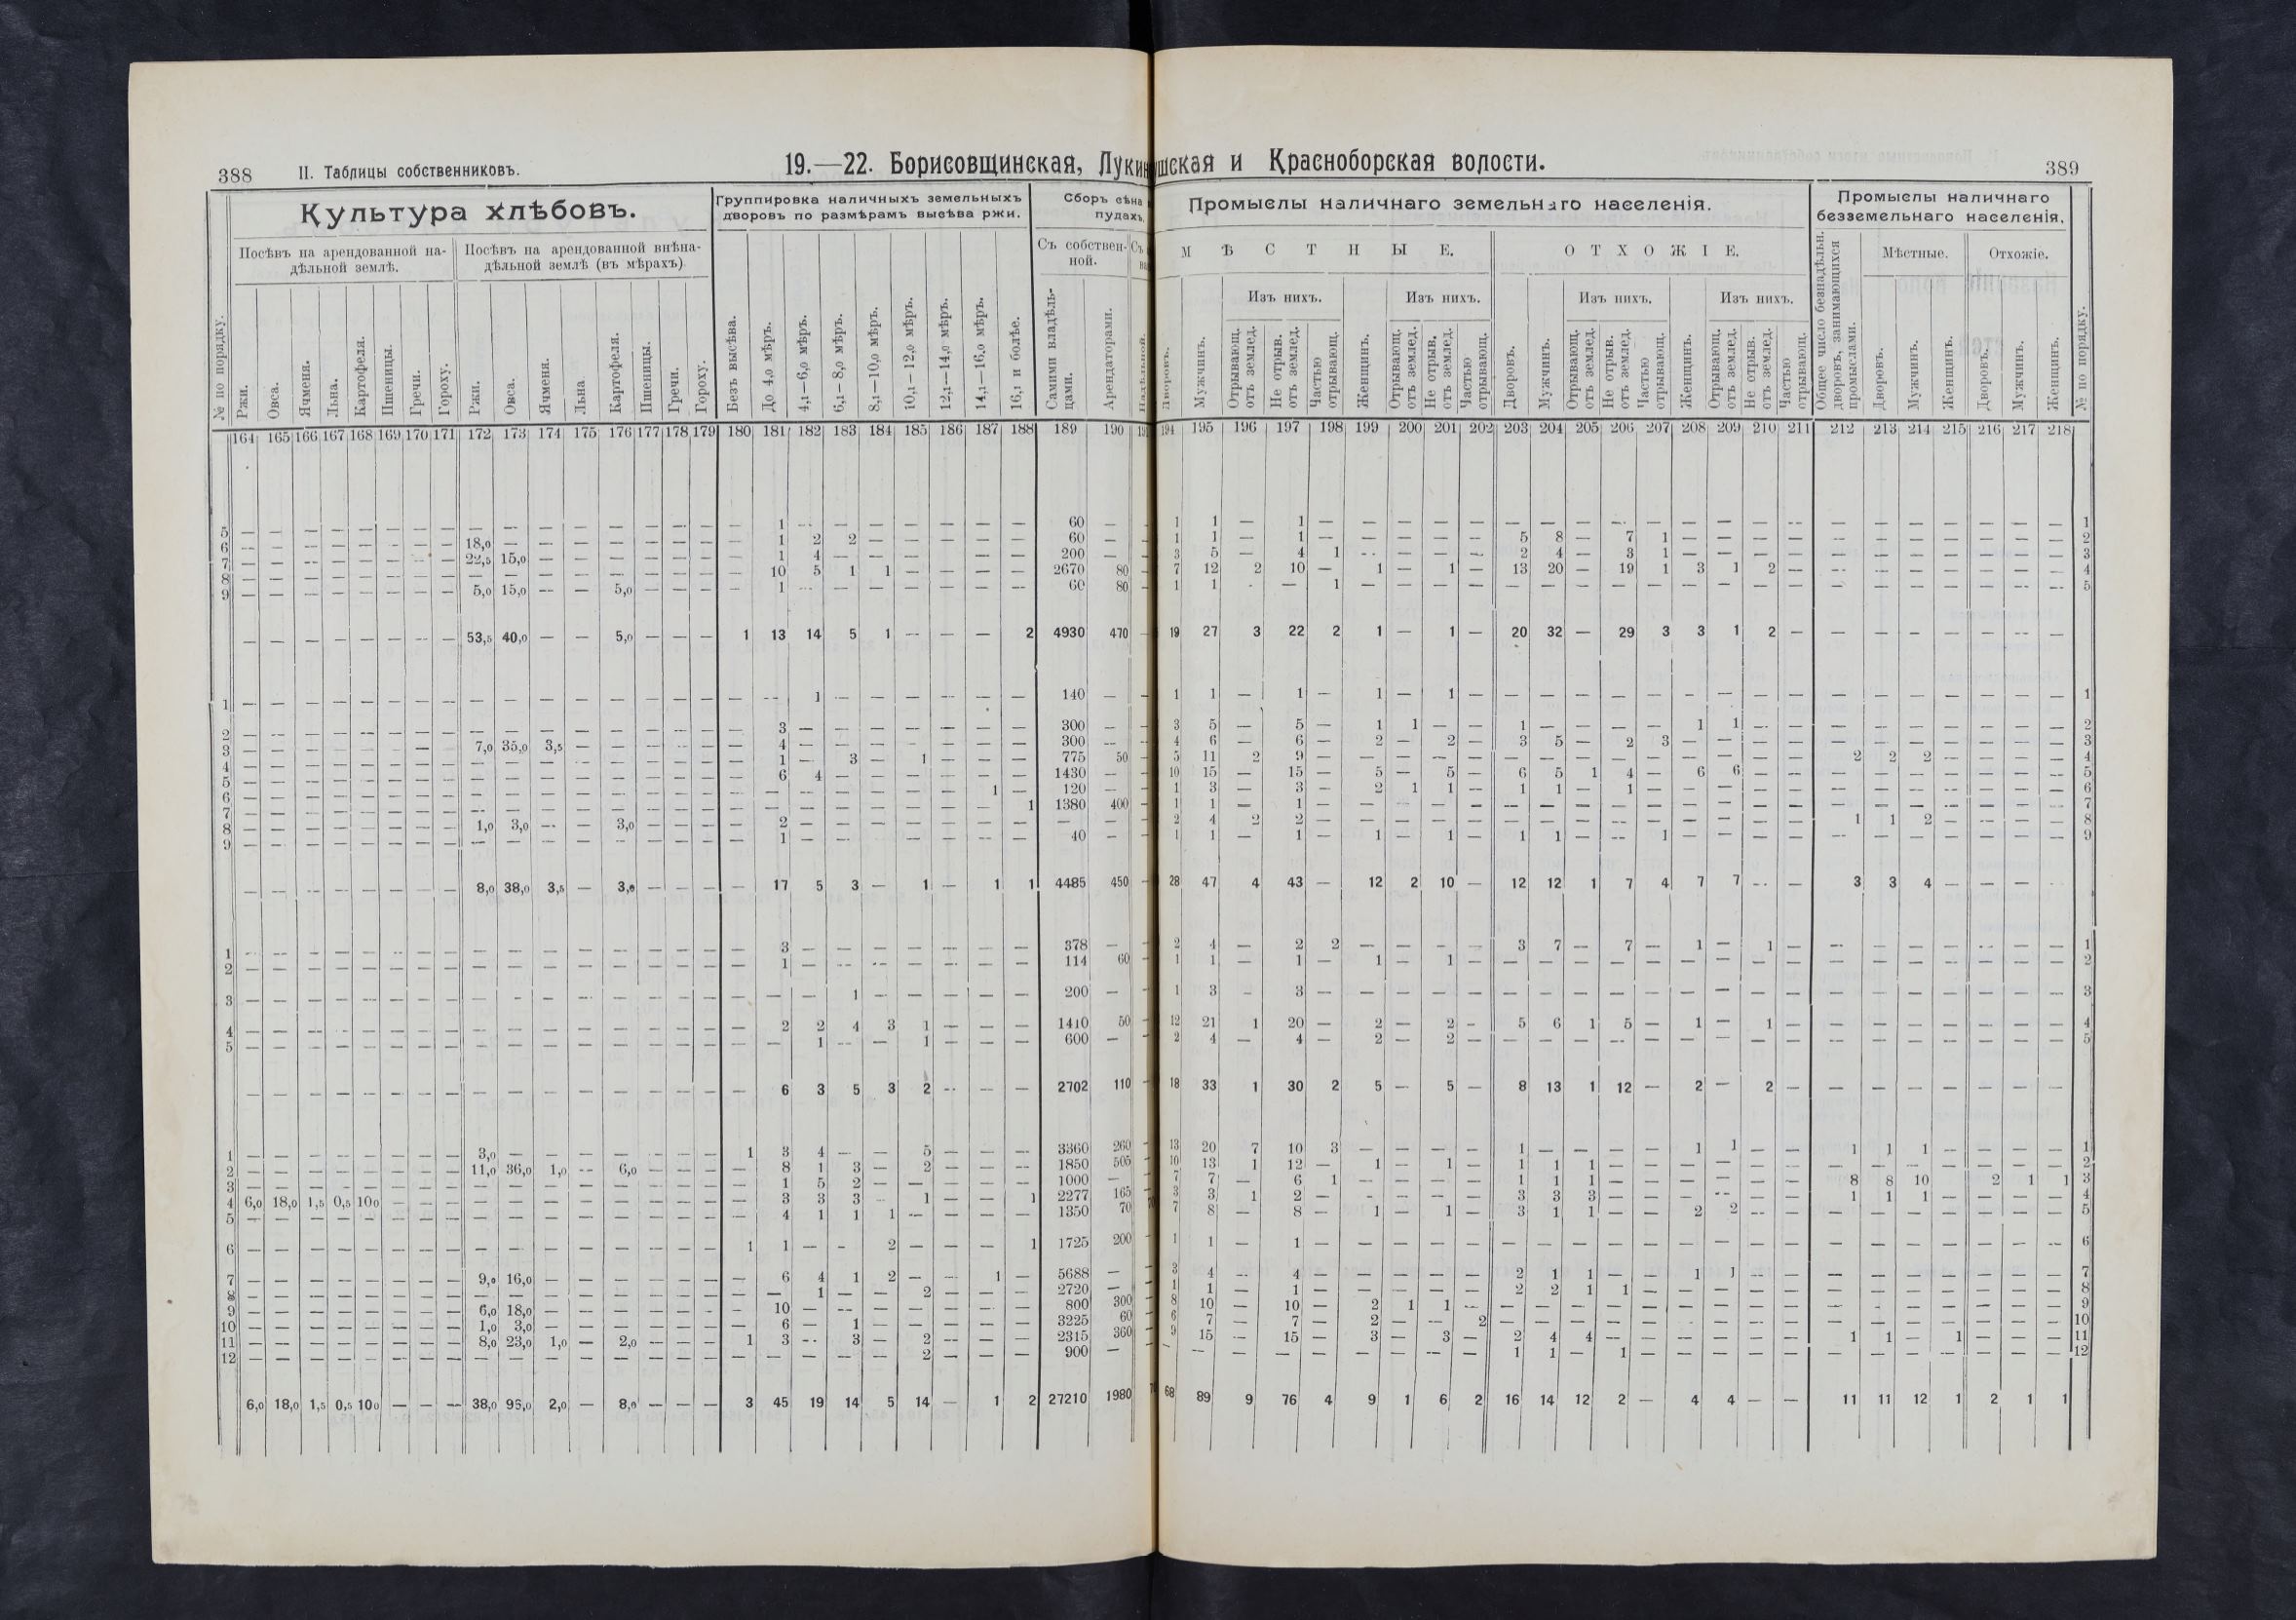 388 II. Таблицы собственниковъ. 19.—22. Борисовщинская, Лукин
Культура хлѣбовъ. Группировка наличныхъ земельныхъ дворовъ по размѣрамъ высѣва ржи. Сборъ сѣна пудахъ.
Посѣвъ на арендованной надѣльной землѣ. Посѣвъ на арендованной внѣнадѣльной землѣ (въ мѣрахъ). Съ собственной.
№ по порядку. Ржи. Овса. Ячменя. Льна. Картофеля. Пшеницы. Гречи. Гороху. Ржи. Овса. Ячменя. Льна. Картофеля. Пшеницы. Гречи. Гороху. Безъ высѣва. До 4,0 мѣръ. 4,1—6,0 мѣръ. 6,1—8,0 мѣръ. 8,1—10,0 мѣръ. 10,1—12,0 мѣръ. 12,1—14,0 мѣръ. 14,1—16,0 мѣръ. 16,1 и болѣе. Самими владѣльцами. Арендаторами.
164 165 166 167 168 169 170 171 172 173 174 175 176 177 178 179 180 181 182 183 184 185 186 187 188 189 190
5 — — — — — — — — — — — — — — — — — 1 — — — — — — — 60 —
6 — — — — — — — — 18,0 — — — — — — — — 1 2 2 — — — — — 60 —
7 — — — — — — — — 22,5 15,0 — — — — — — — 1 4 — — — — — — 200 —
8 — — — — — — — — — — — — — — — — — 10 5 1 1 — — — — 2670 80
9 — — — — — — — — 5,0 15,0 — — 5,0 — — — — 1 — — — — — — — 60 80
— — — — — — — — 53,5 40,0 — — 5,0 — — — 1 13 14 5 1 — — — 2 4930 470
1 — — — — — — — — — — — — — — — — — — 1 — — — — — — 140 —
2 — — — — — — — — — — — — — — — — — 3 — — — — — — — 300 —
3 — — — — — — — — 7,0 35,0 3,5 — — — — — — 4 — — — — — — — 300 —
4 — — — — — — — — — — — — — — — — — 1 — 3 — 1 — — — 775 50
5 — — — — — — — — — — — — — — — — — 6 4 — — — — — — 1430 —
6 — — — — — — — — — — — — — — — — — — — — — — — 1 — 120 —
7 — — — — — — — — — — — — — — — — — — — — — — — — 1 1380 400
8 — — — — — — — — 1,0 3,0 — — 3,0 — — — — 2 — — — — — — — — —
9 — — — — — — — — — — — — — — — — — 1 — — — — — — — 40 —
— — — — — — — — 8,0 38,0 3,5 — 3,0 — — — — 17 5 3 — 1 — 1 1 4485 450
1 — — — — — — — — — — — — — — — — — 3 — — — — — — — 378 —
2 — — — — — — — — — — — — — — — — — 1 — — — — — — — 114 60
3 — — — — — — — — — — — — — — — — — — — 1 — — — — — 200 —
4 — — — — — — — — — — — — — — — — — 2 2 4 3 1 — — — 1410 50
5 — — — — — — — — — — — — — — — — — — 1 — — 1 — — — 600 —
— — — — — — — — — — — — — — — — — 6 3 5 3 2 — — — 2702 110
1 — — — — — — — — 3,0 — — — — — — — 1 3 4 — — 5 — — — 3360 260
2 — — — — — — — — 11,0 36,0 1,0 — 6,0 — — — — 8 1 3 — 2 — — — 1850 505
3 — — — — — — — — — — — — — — — — — 1 5 2 — — — — — 1000 —
4 6,0 18,0 1,5 0,5 100 — — — — — — — — — — — — 3 3 3 — 1 — — 1 2277 165
5 — — — — — — — — — — — — — — — — — 4 1 1 1 — — — — 1350 70
6 — — — — — — — — — — — — — — — — 1 1 — — 2 — — — 1 1725 200
7 — — — — — — — — 9,0 16,0 — — — — — — — 6 4 1 2 — — 1 — 5688 —
8 — — — — — — — — — — — — — — — — — — 1 — — 2 — — — 2720 —
9 — — — — — — — — 6,0 18,0 — — — — — — — 10 — — — — — — — 800 300
10 — — — — — — — — 1,0 3,0 — — — — — — — 6 — 1 — — — — — 3225 60
11 — — — — — — — — 8,0 23,0 1,0 — 2,0 — — — 1 3 — 3 — 2 — — — 2315 360
12 — — — — — — — — — — — — — — — — — — — — — 2 — — — 900 —
6,0 18,0 1,5 0,5 100 — — — 38,0 95,0 2,0 — 8,0 — — — 3 45 19 14 5 14 — 1 2 27210 1980
шская и Красноборская волости. 389
Промыслы наличнаго земельнаго населенія. Промыслы наличнаго безземельнаго населенія.
МѢСТНЫЕ. ОТХОЖІЕ. Общее число безнадѣльн. дворовъ, занимающихся промыслами. Мѣстные. Отхожіе.
Изъ нихъ. Изъ нихъ. Изъ нихъ. Изъ нихъ.
Дворовъ. Мужчинъ. Отрывающ. отъ землед. Не отрыв. отъ землед. Частью отрывающ. Женщинъ. Отрывающ. отъ землед. Не отрыв. отъ землед. Частью отрывающ. Дворовъ. Мужчинъ. Отрывающ. отъ землед. Не отрыв. отъ землед. Частью отрывающ. Женщинъ. Отрывающ. отъ землед. Не отрыв. отъ землед. Частью отрывающ. Дворовъ. Мужчинъ. Женщинъ. Дворовъ. Мужчинъ. Женщинъ. № по порядку.
194 195 196 197 198 199 200 201 202 203 204 205 206 207 208 209 210 211 212 213 214 215 216 217 218
1 1 — 1 — — — — — — — — — — — — — — — — — — — — — 1
1 1 — 1 — — — — — 5 8 — 7 1 — — — — — — — — — — — 2
3 5 — 4 1 — — — — 2 4 — 3 1 — — — — — — — — — — — 3
7 12 2 10 — 1 — 1 — 13 20 — 19 1 3 1 2 — — — — — — — — 4
1 1 — — 1 — — — — — — — — — — — — — — — — — — — — 5
19 27 3 22 2 1 — 1 — 20 32 — 29 3 3 1 2 — — — — — — — —
1 1 — 1 — 1 — 1 — — — — — — — — — — — — — — — — — 1
3 5 — 5 — 1 1 — — 1 — — — — 1 1 — — — — — — — — — 2
4 6 — 6 — 2 — 2 — 3 5 — 2 3 — — — — — — — — — — — 3
5 11 2 9 — — — — — — — — — — — — — — 2 2 2 — — — — 4
10 15 — 15 — 5 — 5 — 6 5 1 4 — 6 6 — — — — — — — — — 5
1 3 — 3 — 2 1 1 — 1 1 — 1 — — — — — — — — — — — — 6
1 1 — 1 — — — — — — — — — — — — — — — — — — — — — 7
2 4 2 2 — — — — — — — — — — — — — — 1 1 2 — — — — 8
1 1 — 1 — 1 — 1 — 1 1 — — 1 — — — — — — — — — — — 9
28 47 4 43 — 12 2 10 — 12 12 1 7 4 7 7 — — 3 3 4 — — —
2 4 — 2 2 — — — — 3 7 — 7 — 1 — 1 — — — — — — — — 1
1 1 — 1 — 1 — 1 — — — — — — — — — — — — — — — — — 2
1 3 — 3 — — — — — — — — — — — — — — — — — — — — — 3
12 21 1 20 — 2 — 2 — 5 6 1 5 — 1 — 1 — — — — — — — — 4
2 4 — 4 — 2 — 2 — — — — — — — — — — — — — — — — — 5
18 33 1 30 2 5 — 5 — 8 13 1 12 — 2 — 2 — — — — — — — —
13 20 7 10 3 — — — — 1 — — — — 1 1 — — 1 1 1 — — — — 1
10 13 1 12 — 1 — 1 — 1 1 1 — — — — — — — — — — — — — 2
7 7 — 6 1 — — — — 1 1 1 — — — — — — 8 8 10 — 2 1 1 3
3 3 1 2 — — — — — 3 3 3 — — — — — — 1 1 1 — — — — 4
7 8 — 8 — 1 — 1 — 3 1 1 — — 2 2 — — — — — — — — — 5
1 1 — 1 — — — — — — — — — — — — — — — — — — — — — 6
3 4 — 4 — — — — — 2 1 1 — — 1 1 — — — — — — — — — 7
1 1 — 1 — — — — — 2 2 1 1 — — — — — — — — — — — — 8
8 10 — 10 — 2 1 1 — — — — — — — — — — — — — — — — — 9
6 7 — 7 — 2 — — 2 — — — — — — — — — — — — — — — — 10
9 15 — 15 — 3 — 3 — 2 4 4 — — — — — — 1 1 — 1 — — — 11
— — — — — — — — — 1 1 — 1 — — — — — — — — — — — — 12
68 89 9 76 4 9 1 6 2 16 14 12 2 — 4 4 — — 11 11 12 1 2 1 1